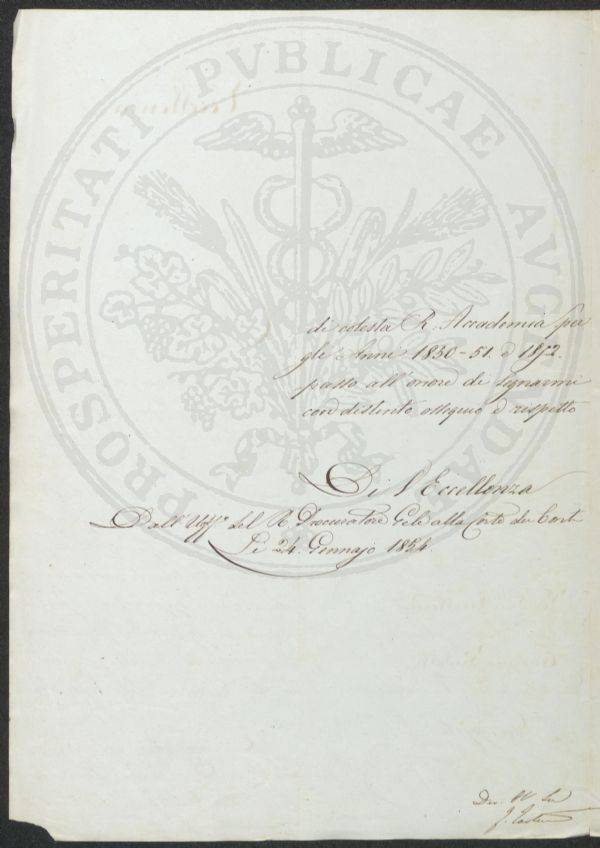 PROSPERITATI PVBLICAE AVGENDAE
di cotesta R. Accademia per
gli Anni 1850-51. e 1852.
passo all'onore di segnarmi
con distinto ossequio e rispetto
Di S Eccellenza
Dall'Uff.o del R. Procuratore Gele alla Corte dei Conti
Li 24. Gennajo 1854.